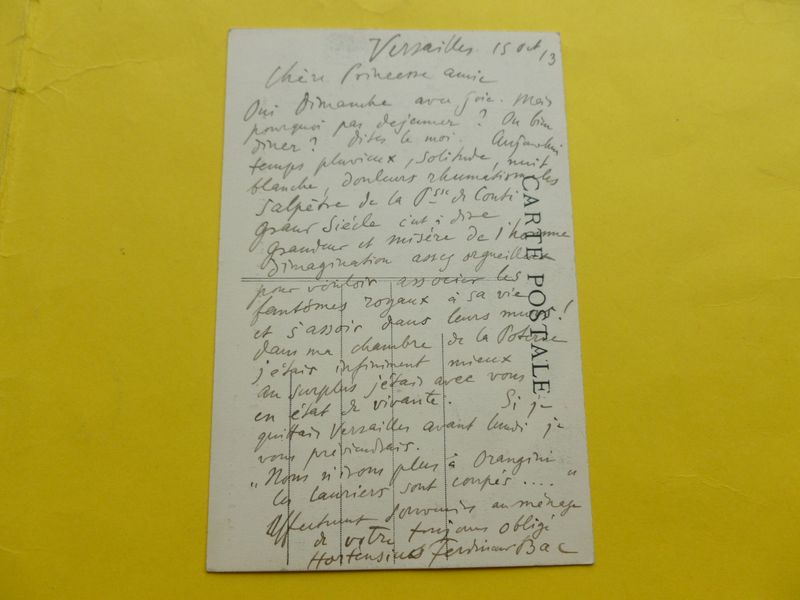 Versailles 15 oct 13
Chère Princesse amie
Oui Dimanche avec joie. Mais
pourquoi pas dejeuner ? Ou bien
diner ? Dites le moi. Aujourdhui
temps pluvieux, solitude, nuit
blanche, douleurs rhumatismales
Salpêtre de la Psse de Conti
grand Siècle c'est à dire
grandeur et misère de l'homme
d'imagination assez orgueilleux
pour vouloir associer les
fantômes royaux à sa vie
et s'assoir dans leurs murs !
dans ma chambre de la Poterne
j'étais infiniment mieux
au surplus j'étais avec vous
en état de vivante. Si je
quittais Versailles avant lundi je
vous préviendrais.
"Nous n'irons plus à Orangini
les lauriers sont coupés .... "
Affectueux souvenirs au ménage
de votre toujours obligé
Hortensius Ferdinand Bac
CARTE POSTALE